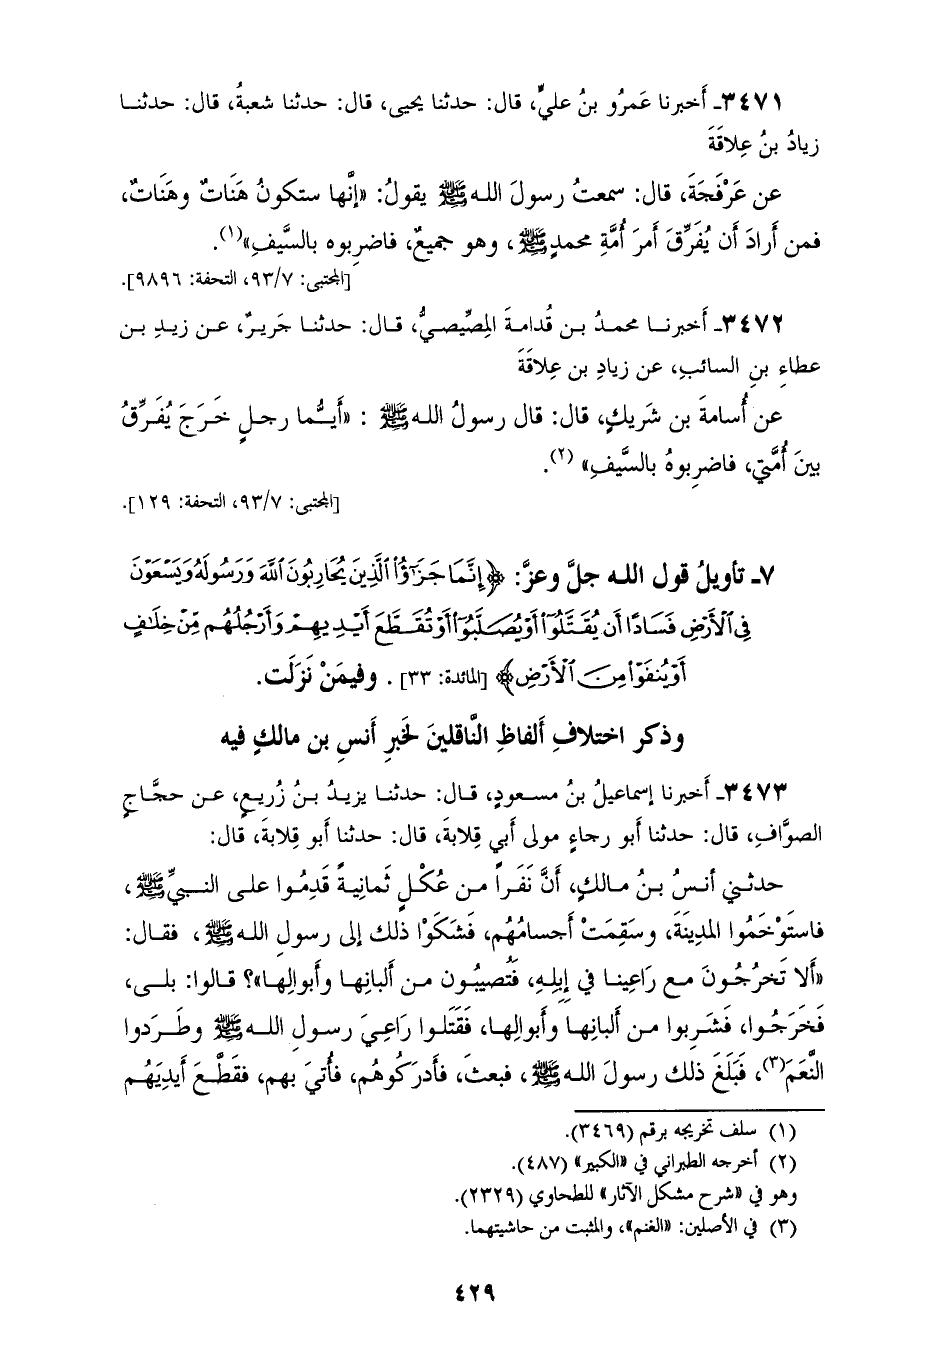 ٣٤٧١ـ أَخبرنا عَمرُو بنُ عليٍّ، قال: حدثنا يحيى، قال: حدثنا شعبةُ، قال: حدثنا
زيادُ بنُ عِلاقَةَ
عن عَرْفَجَةَ، قال: سمعتُ رسولَ اللهﷺ يقولُ: «إنَّها ستكونُ هَنَاتٌ وهَنَاتٌ،
فمن أَرادَ أَن يُفَرِّقَ أَمرَ أُمَّةِ محمدٍﷺ، وهو جميعٌ، فاضرِبوه بالسَّيفِ»(١).
[المجتبى: ٩٣/٧، التحفة: ٩٨٩٦].
٣٤٧٢ـ أَخبرنا محمدُ بن قُدامةَ المِصِّيصيُّ، قال: حدثنا جَريرٌ، عن زيدِ بن
عطاءِ بنِ السائبِ، عن زيادِ بن عِلاقَةَ
عن أُسامةَ بن شَريكٍ، قال: قال رسولُ اللهﷺ : «أَيُّما رجلٍ خَرَجَ يُفَرِّقُ
بينَ أُمَّتي، فاضرِبوهُ بالسَّيفِ» (٢).
[المجتبى: ٩٣/٧، التحفة: ١٢٩].
٧ـ تأويلُ قول الله جلَّ وعزَّ: ﴿إِنَّمَا جَزَٰٓؤُا۟ ٱلَّذِينَ يُحَارِبُونَ ٱللَّهَ وَرَسُولَهُۥ وَيَسْعَوْنَ
فِى ٱلْأَرْضِ فَسَادًا أَن يُقَتَّلُوٓا۟ أَوْ يُصَلَّبُوٓا۟ أَوْ تُقَطَّعَ أَيْدِيهِمْ وَأَرْجُلُهُم مِّنْ خِلَٰفٍ
أَوْ يُنفَوْا۟ مِنَ ٱلْأَرْضِ﴾ [المائدة: ٣٣] . وفيمَنْ نَزَلَت.
وذكر اختلافِ أَلفاظِ النَّاقلينَ لخبرِ أَنسِ بن مالكٍ فيه
٣٤٧٣ـ أَخبرنا إسماعيلُ بنُ مسعودٍ، قال: حدثنا يزيدُ بنُ زُريعٍ، عن حجَّاجٍ
الصوَّافِ، قال: حدثنا أبو رجاءٍ مولى أبي قِلابةَ، قال: حدثنا أبو قِلابةَ، قال:
حدثني أنسُ بنُ مالكٍ، أَنَّ نَفَراً من عُكْلٍ ثَمانِيةً قَدِمُوا على النبيِّﷺ،
فاستَوْخَمُوا المدِينَةَ، وسَقِمَتْ أجسامُهُم، فَشَكَوْا ذلك إلى رسولِ اللهﷺ، فقال:
«أَلا تَخرُجُونَ مع رَاعِينا في إبِلِهِ، فَتُصيبُون من ألبانِها وأبوالِها»؟ قالوا: بلى،
فَخَرَجُوا، فَشَرِبوا من ألبانِها وأبوالِها، فَقَتَلوا رَاعِيَ رسولِ اللهﷺ وطَرَدوا
النَّعَمَ(٣)، فَبَلَغَ ذلك رسولَ اللهﷺ، فبعثَ، فأدرَكُوهُم، فأُتيَ بهم، فقَطَّعَ أيدِيَهُم
(١) سلف تخريجه برقم (٣٤٦٩).
(٢) أخرجه الطبراني في «الكبير» (٤٨٧).
وهو في «شرح مشكل الآثار» للطحاوي (٢٣٢٩).
(٣) في الأصلين: «الغنم»، والمثبت من حاشيتهما.
٤٢٩